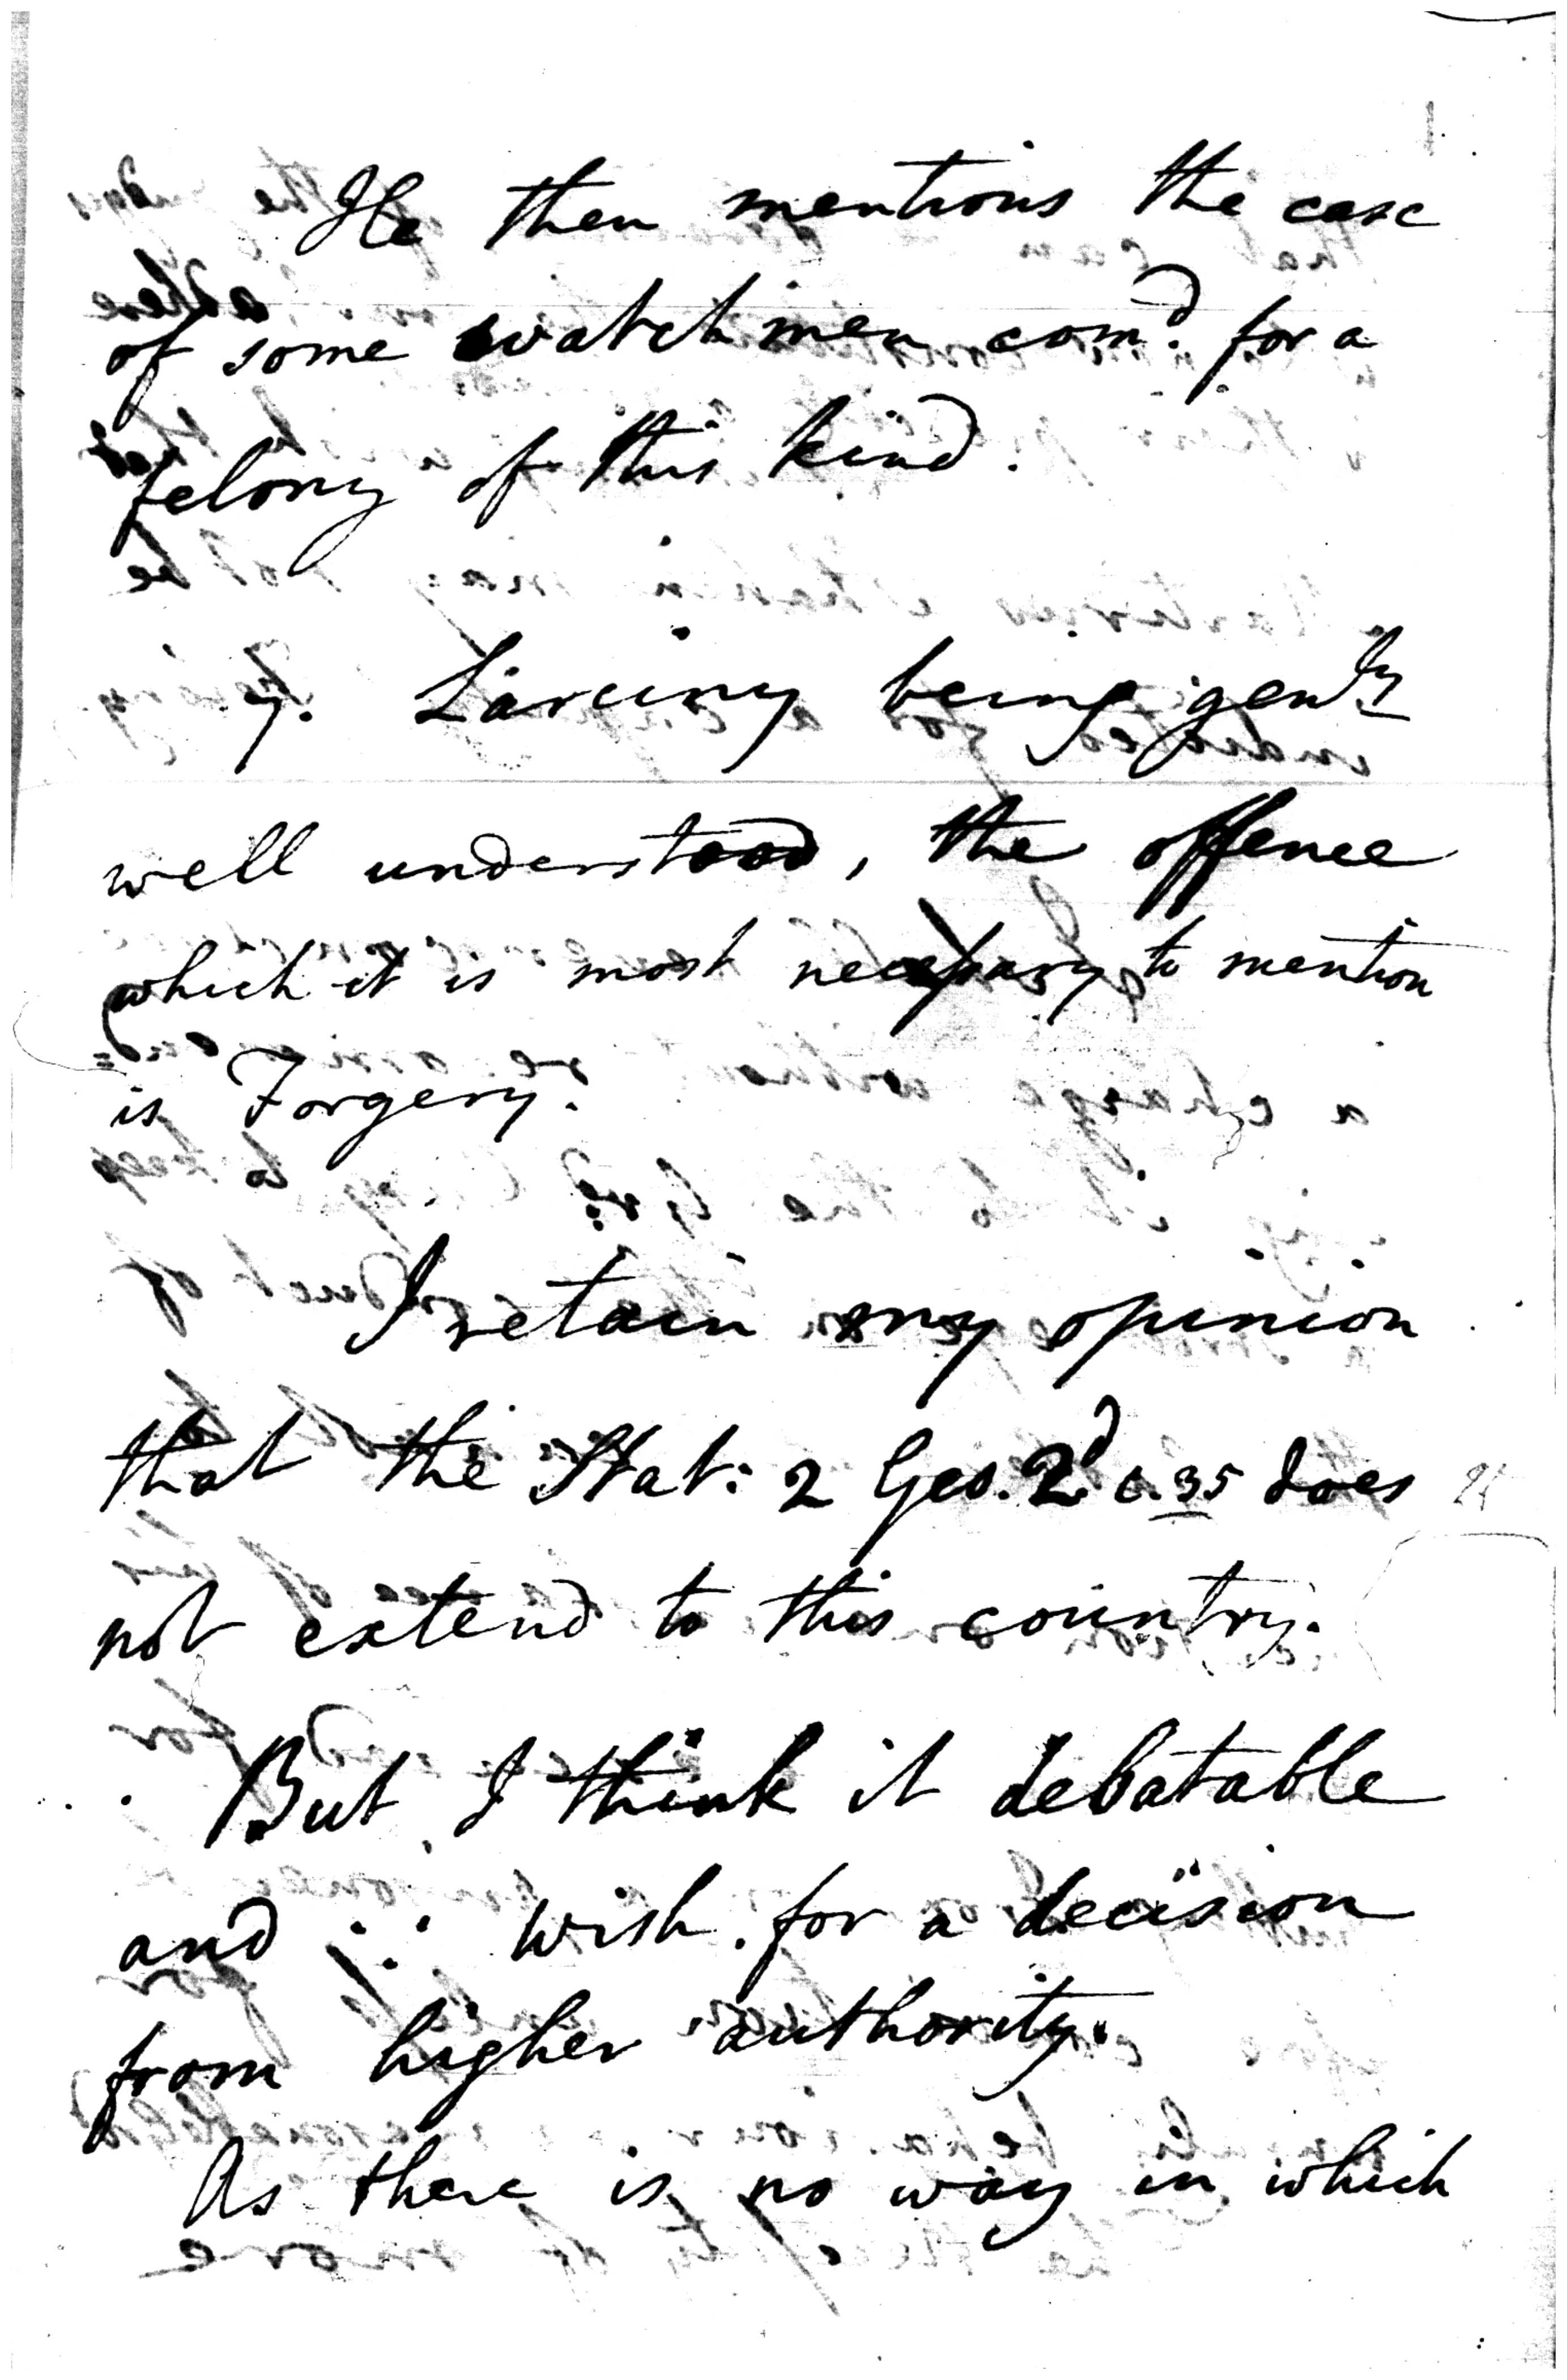 He then mentions the case
of some watchmen com.d for a
felony of this kind.
7. Larciny being gen.ly
well understood, the offence
which it is most necessary to mention
is Forgery.
I retain my opinion
that the Stat: 2 Geo. 2.d c. 35 does
not extend to this country.
But I think it debatable
and ∴ wish for a decision
from higher authority.
As there is no way in which